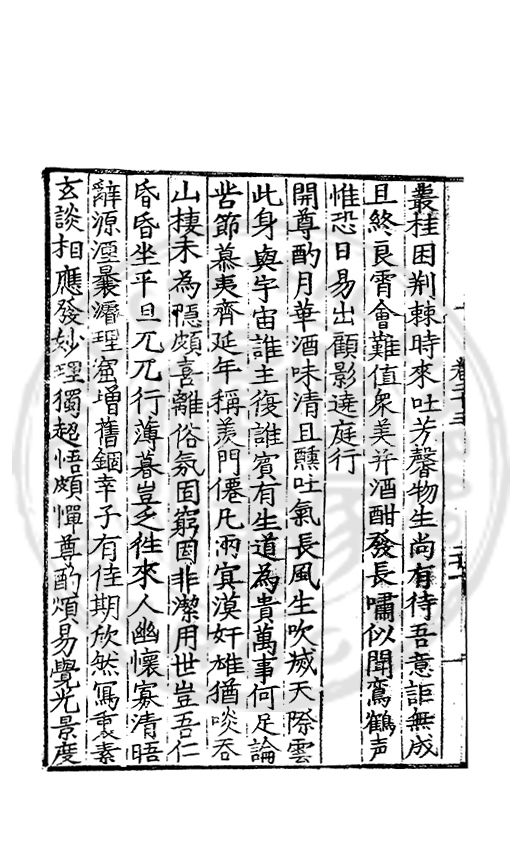 叢桂困荆棘時來吐芳馨物生尚有待吾意詎無成
且終良霄會難值衆美并酒酣發長嘯似聞鸞鶴声
惟恐日易出顧影遶庭行
開尊酌月華酒味清且醺吐氣長風生吹滅天際雲
此身與宇宙誰主復誰賓有生道為貴萬事何足論
苦節慕夷齊延年稱羨門僊凡兩寞漠奸雄猶啖吞
山棲未為隱頗喜離俗氛固窮因非潔用世豈吾仁
昏昏坐平旦兀兀行薄暮豈乏徃來人幽懷寡清晤
辭源湮曩濬理窟增舊錮幸子有佳期欣然寫衷素
玄談相應發妙理獨超悟頗憚尊酌煩易覺光景度